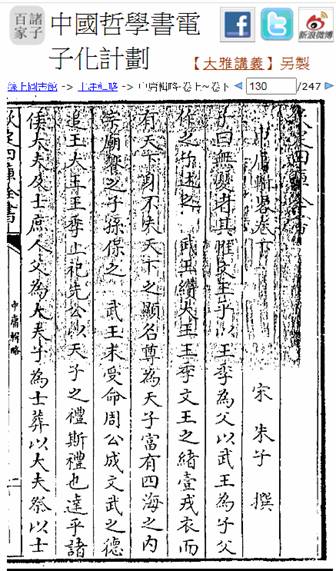 諸子百家
中國哲學書電子化計劃
新浪微博
【大雅講義】另製
線上圖書館 -> 中庸輯略 -> 中庸輯略卷上~卷下
130 /247
欽定四庫全書
中庸輯略卷下
宋 朱子 撰
子曰無憂者其惟文王乎以王季為父以武王為子父
作之子述之 武王纘大王王季文王之緒壹戎衣而
有天下身不失天下之顯名尊為天子富有四海之內
宗廟饗之子孫保之 武王末受命周公成文武之德
追王大王王季上祀先公以天子之禮斯禮也達乎諸
侯大夫及士庶人父為大夫子為士葬以大夫祭以士
欽定四庫全書
中庸輯略